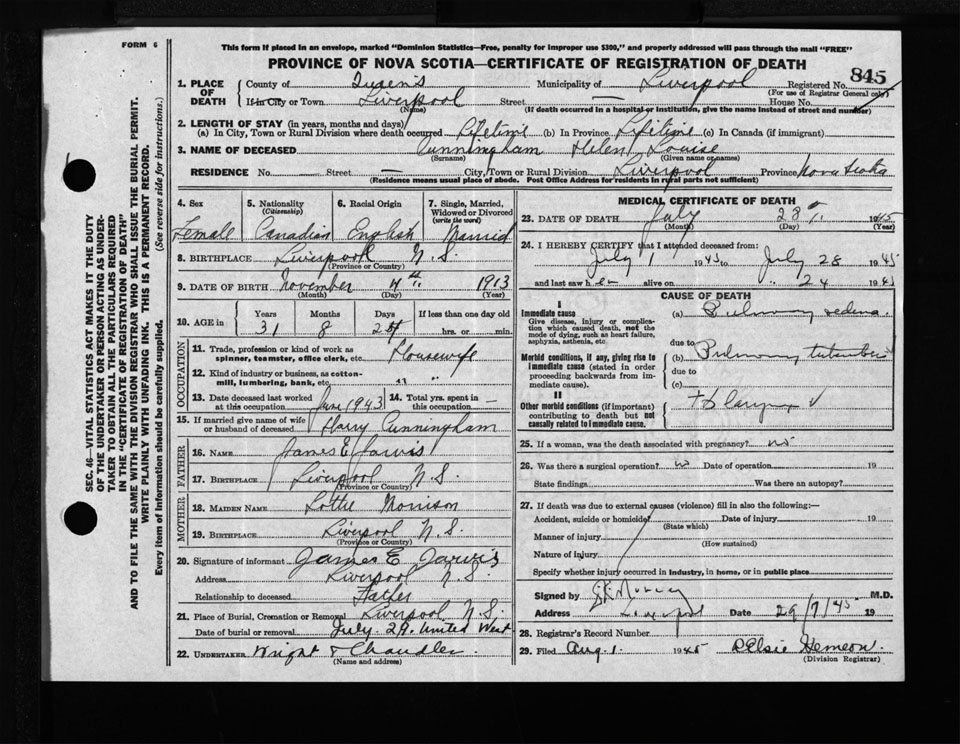 FORM 6
This form if placed in an envelope, marked "Dominion Statistics—Free, penalty for improper use $300," and properly addressed will pass through the mail "FREE"
PROVINCE OF NOVA SCOTIA—CERTIFICATE OF REGISTRATION OF DEATH
845
SEC. 46—VITAL STATISTICS ACT MAKES IT THE DUTY
OF THE UNDERTAKER OR PERSON ACTING AS UNDER-
TAKER TO OBTAIN ALL THE PARTICULARS REQUIRED
IN THE "CERTIFICATE OF REGISTRATION OF DEATH"
AND TO FILE THE SAME WITH THE DIVISION REGISTRAR WHO SHALL ISSUE THE BURIAL PERMIT.
WRITE PLAINLY WITH UNFADING INK. THIS IS A PERMANENT RECORD.
Every item of information should be carefully supplied. (See reverse side for instructions.)
1. PLACE OF DEATH
County of Queen's Municipality of Liverpool Registered No.
(For use of Registrar General only)
If in City or Town Liverpool Street — House No.
(Name) (If death occurred in a hospital or institution, give the name instead of street and number)
2. LENGTH OF STAY (in years, months and days)
(a) In City, Town or Rural Division where death occurred Lifetime (b) In Province Lifetime (c) In Canada (if immigrant)
3. NAME OF DECEASED Cunningham Helen Louise
(Surname) (Given name or names)
RESIDENCE No. — Street — City, Town or Rural Division Liverpool Province Nova Scotia
(Residence means usual place of abode. Post Office Address for residents in rural parts not sufficient)
4. Sex
Female
5. Nationality
(Citizenship)
Canadian
6. Racial Origin
English
7. Single, Married, Widowed or Divorced
(write the word)
Married
8. BIRTHPLACE Liverpool N.S.
(Province or Country)
9. DATE OF BIRTH November 4th 1913
(Month) (Day) (Year)
10. AGE in Years Months Days If less than one day old
31 8 24 hrs. or min.
OCCUPATION
11. Trade, profession or kind of work as spinner, teamster, office clerk, etc. Housewife
12. Kind of industry or business, as cotton-mill, lumbering, bank, etc. " "
13. Date deceased last worked at this occupation June 1943
14. Total yrs. spent in this occupation —
15. If married give name of wife or husband of deceased Harry Cunningham
FATHER
16. NAME James E Jarvis
17. BIRTHPLACE Liverpool N.S.
(Province or Country)
MOTHER
18. MAIDEN NAME Lottie Morrison
19. BIRTHPLACE Liverpool N.S.
(Province or Country)
20. Signature of informant James E Jarvis
Address Liverpool N.S.
Relationship to deceased Father
21. Place of Burial, Cremation or Removal Liverpool N.S.
Date of burial or removal July 29. United West
22. UNDERTAKER Wright & Chandler
(Name and address)
MEDICAL CERTIFICATE OF DEATH
23. DATE OF DEATH July 28th 1945
(Month) (Day) (Year)
24. I HEREBY CERTIFY that I attended deceased from:
July 1 1945 to July 28 1945
and last saw her alive on " 24 1945
CAUSE OF DEATH
I
Immediate cause
Give disease, injury or complication which caused death, not the mode of dying, such as heart failure, asphyxia, asthenia, etc.
(a) Pulmonary edema
due to
Morbid conditions, if any, giving rise to immediate cause (stated in order proceeding backwards from immediate cause).
(b) Pulmonary
due to
(c)
II
Other morbid conditions (if important) contributing to death but not causally related to immediate cause.
25. If a woman, was the death associated with pregnancy? no
26. Was there a surgical operation? no Date of operation 19
State findings Was there an autopsy?
27. If death was due to external causes (violence) fill in also the following:—
Accident, suicide or homicide? Date of injury 19
(State which)
Manner of injury
(How sustained)
Nature of injury
Specify whether injury occurred in industry, in home, or in public place
Signed by M.D.
Address Liverpool Date 29/7/45 19
28. Registrar's Record Number
29. Filed Aug. 1. 1945 Elsie Hemeon.
(Division Registrar)